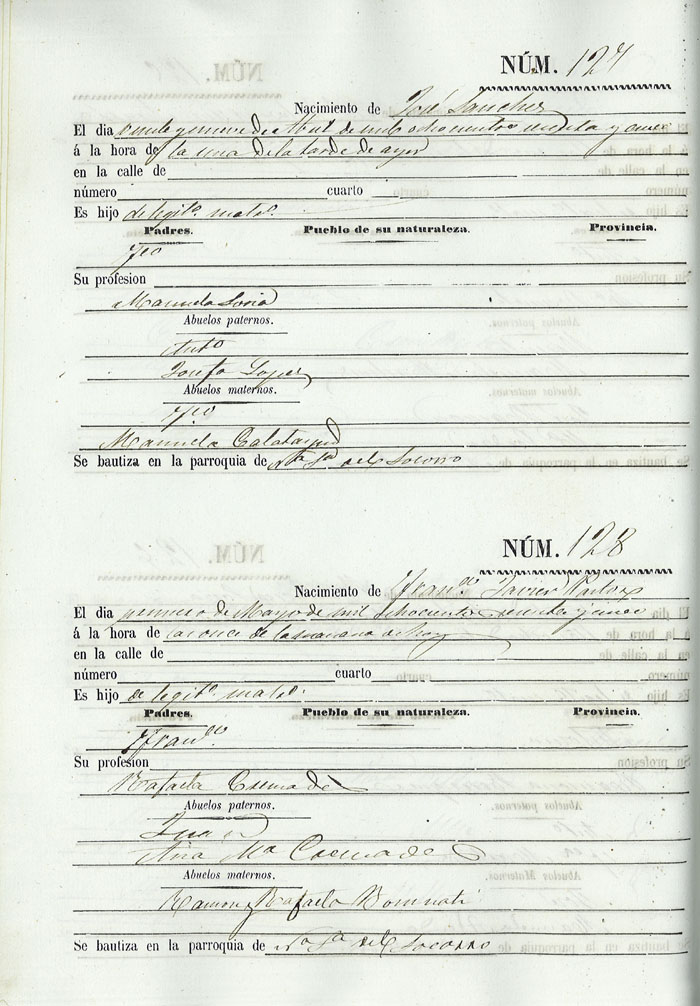 NÚM. 127
Nacimiento de José Sanchez
El dia veinte y nueve de Abril de mil ochocientos y
á la hora de la una de la tarde de ayer
en la calle de
número cuarto
Es hijo de legito. mato.
Padres. Pueblo de su naturaleza. Provincia.
Su profesion
Manuela Soria
Abuelos paternos.
Anto
Josefa Lopez
Abuelos maternos.
Manuela Calatayud
Se bautiza en la parroquia de Nta. Sa. del Socorro
NÚM. 128
Nacimiento de Franco. Javier Pastor
El dia primero de Mayo de mil ochocientos y
á la hora de las once de la mañana de hoy
en la calle de
número cuarto
Es hijo de legito. mato.
Padres. Pueblo de su naturaleza. Provincia.
Franco.
Su profesion
Rafaela
Abuelos paternos.
Juan
Ana Ma
Abuelos maternos.
Ramon y Rafaela
Se bautiza en la parroquia de Na. Sa. del Socorro